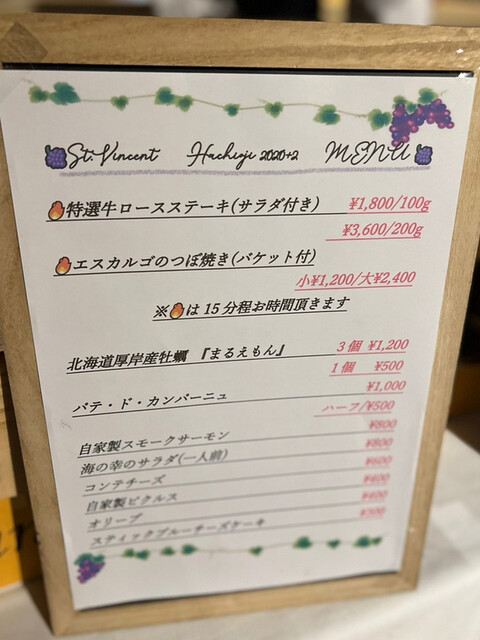 St.Vincent Hachioji 2020+2 MENU
特選牛ロースステーキ(サラダ付き) ¥1,800/100g
¥3,600/200g
エスカルゴのつぼ焼き(バケット付)
小¥1,200/大¥2,400
※🔥は15分程お時間頂きます
北海道厚岸産牡蠣 『まるえもん』 3個 ¥1,200
1個 ¥500
パテ・ド・カンパーニュ ¥1,000
ハーフ/¥500
自家製スモークサーモン ¥800
海の幸のサラダ(一人前) ¥800
コンテチーズ ¥600
自家製ピクルス ¥400
オリーブ ¥400
スティックブルーチーズケーキ ¥500